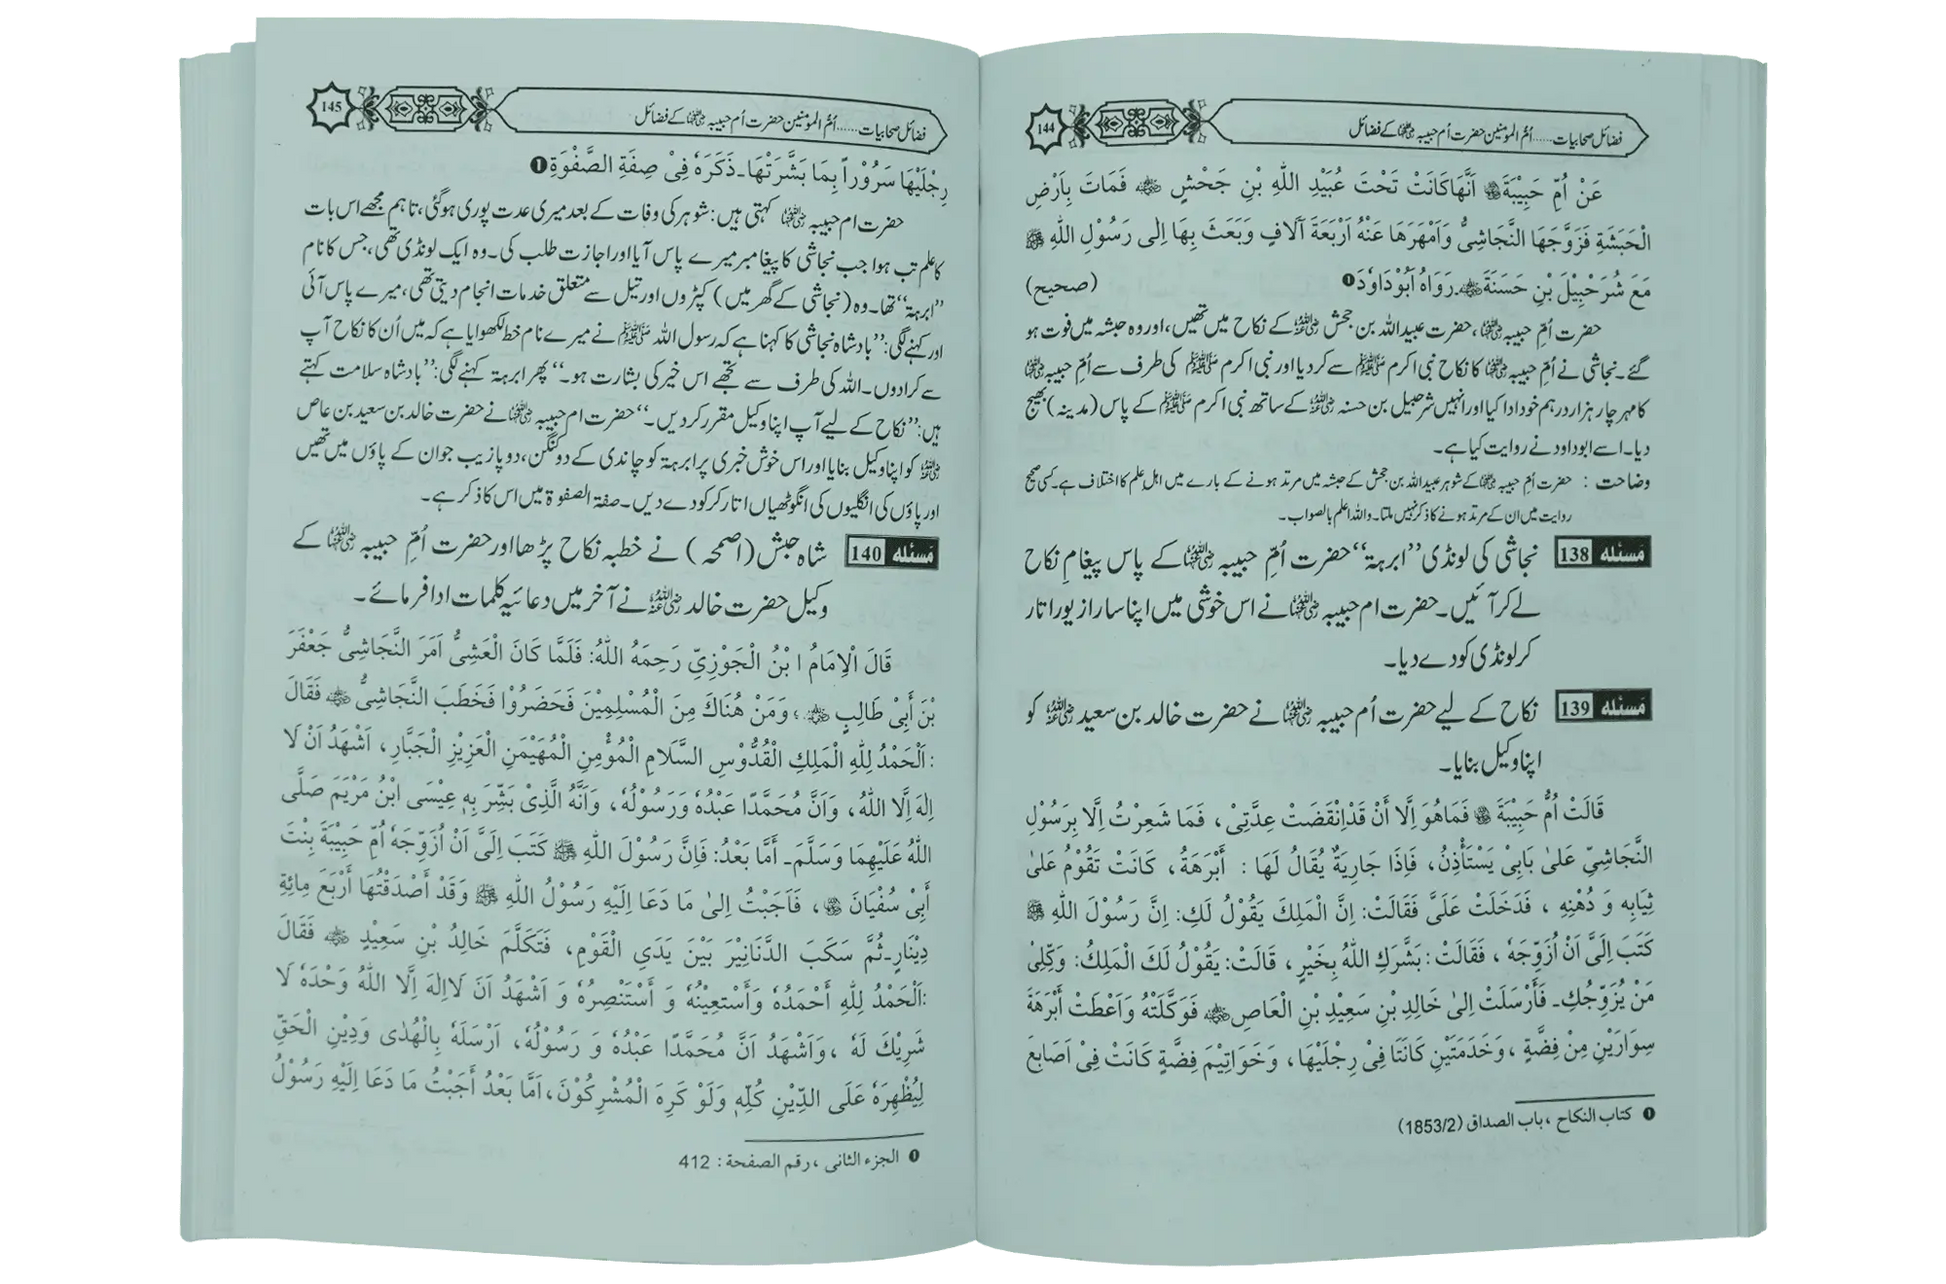 فضائل صحابیات......اُمّ المومنین حضرت اُم حبیبہ رضی اللہ عنہا کے فضائل
144
عَنْ اُمِّ حَبِیْبَةَ رضی اللہ عنہا اَنَّهَا كَانَتْ تَحْتَ عُبَيْدِ اللّٰهِ بْنِ جَحْشٍ رضی اللہ عنہ فَمَاتَ بِاَرْضِ
الْحَبَشَةِ فَزَوَّجَهَا النَّجَاشِيُّ وَاَمْهَرَهَا عَنْهُ اَرْبَعَةَ آلَافٍ وَبَعَثَ بِهَا اِلٰى رَسُوْلِ اللّٰهِ ﷺ
مَعَ شُرَحْبِيْلَ بْنِ حَسَنَةَ رضی اللہ عنہ۔ رَوَاهُ اَبُوْدَاوٗدَ❶ (صحیح)
حضرت اُمّ حبیبہ رضی اللہ عنہا، حضرت عبیداللہ بن جحش رضی اللہ عنہ کے نکاح میں تھیں، اور وہ حبشہ میں فوت ہو
گئے۔ نجاشی نے اُمّ حبیبہ رضی اللہ عنہا کا نکاح نبی اکرم ﷺ سے کردیا اور نبی اکرم ﷺ کی طرف سے اُمّ حبیبہ رضی اللہ عنہا
کا مہر چار ہزار درہم خود ادا کیا اور انہیں شرحبیل بن حسنہ رضی اللہ عنہ کے ساتھ نبی اکرم ﷺ کے پاس (مدینہ) بھیج
دیا۔ اسے ابوداود نے روایت کیا ہے۔
وضاحت : حضرت اُمّ حبیبہ رضی اللہ عنہا کے شوہر عبیداللہ بن جحش کے حبشہ میں مرتد ہونے کے بارے میں اہل علم کا اختلاف ہے۔ کسی صحیح
روایت میں ان کے مرتد ہونے کا ذکر نہیں ملتا۔ واللہ اعلم بالصواب۔
مَسئله 138 نجاشی کی لونڈی ’’ابرہۃ‘‘ حضرت اُمّ حبیبہ رضی اللہ عنہا کے پاس پیغامِ نکاح
لے کر آئیں۔ حضرت ام حبیبہ رضی اللہ عنہا نے اس خوشی میں اپنا سارا زیور اتار
کر لونڈی کو دے دیا۔
مَسئله 139 نکاح کے لیے حضرت اُم حبیبہ رضی اللہ عنہا نے حضرت خالد بن سعید رضی اللہ عنہ کو
اپنا وکیل بنایا۔
قَالَتْ اُمُّ حَبِيْبَةَ رضی اللہ عنہا فَمَاهُوَ اِلَّا أَنْ قَدْاِنْقَضَتْ عِدَّتِيْ، فَمَا شَعِرْتُ اِلَّا بِرَسُوْلِ
النَّجَاشِيِّ عَلىٰ بَابِيْ يَسْتَأْذِنُ، فَاِذَا جَارِيَةٌ يُقَالُ لَهَا : أَبْرَهَةُ، كَانَتْ تَقُوْمُ عَلىٰ
ثِيَابِهٖ وَ دُهْنِهٖ ، فَدَخَلَتْ عَلَيَّ فَقَالَتْ: اِنَّ الْمَلِكَ يَقُوْلُ لَكِ: اِنَّ رَسُوْلَ اللّٰهِ ﷺ
كَتَبَ اِلَيَّ اَنْ اُزَوِّجَهٗ ، فَقَالَتْ: بَشَّرَكِ اللّٰهُ بِخَيْرٍ، قَالَتْ: يَقُوْلُ لَكَ الْمَلِكُ: وَكِّلِيْ
مَنْ يُزَوِّجُكِ۔ فَأَرْسَلَتْ اِلىٰ خَالِدِ بْنِ سَعِيْدِ بْنِ الْعَاصِ رضی اللہ عنہ فَوَكَّلَتْهُ وَاَعْطَتْ أَبْرَهَةَ
سِوَارَيْنِ مِنْ فِضَّةٍ ، وَخَدَمَتَيْنِ كَانَتَا فِيْ رِجْلَيْهَا، وَخَوَاتِيْمَ فِضَّةٍ كَانَتْ فِيْ اَصَابِعَ
❶ كتاب النكاح ، باب الصداق (1853/2)
فضائل صحابیات......اُمّ المومنین حضرت اُم حبیبہ رضی اللہ عنہا کے فضائل
145
رِجْلَيْهَا سَرُوْراً بِمَا بَشَّرَتْهَا۔ ذَكَرَهٗ فِيْ صِفَةِ الصَّفْوَةِ❶
حضرت ام حبیبہ رضی اللہ عنہا کہتی ہیں: شوہر کی وفات کے بعد میری عدت پوری ہوگئی، تاہم مجھے اس بات
کا علم تب ہوا جب نجاشی کا پیغامبر میرے پاس آیا اور اجازت طلب کی۔ وہ ایک لونڈی تھی، جس کا نام
’’ابرہۃ‘‘ تھا۔ وہ (نجاشی کے گھر میں) کپڑوں اور تیل سے متعلق خدمات انجام دیتی تھی، میرے پاس آئی
اور کہنے لگی: ’’بادشاہ نجاشی کا کہنا ہے کہ رسول اللہ ﷺ نے میرے نام خط لکھوایا ہے کہ میں اُن کا نکاح آپ
سے کرادوں۔ اللہ کی طرف سے تجھے اس خیر کی بشارت ہو۔‘‘ پھر ابرہۃ کہنے لگی: ’’بادشاہ سلامت کہتے
ہیں: ’’نکاح کے لیے آپ اپنا وکیل مقرر کردیں۔‘‘ حضرت ام حبیبہ رضی اللہ عنہا نے حضرت خالد بن سعید بن عاص
رضی اللہ عنہ کو اپنا وکیل بنایا اور اس خوش خبری پر ابرہۃ کو چاندی کے دو کنگن، دو پازیب جو ان کے پاؤں میں تھیں
اور پاؤں کی انگلیوں کی انگوٹھیاں اتار کر کو دے دیں۔ صفۃ الصفوۃ میں اس کا ذکر ہے۔
مَسئله 140 شاہ حبش (اصمحہ) نے خطبہ نکاح پڑھا اور حضرت اُمّ حبیبہ رضی اللہ عنہا کے
وکیل حضرت خالد رضی اللہ عنہ نے آخر میں دعائیہ کلمات ادا فرمائے۔
قَالَ الْاِمَامُ ابْنُ الْجَوْزِيِّ رَحِمَهُ اللّٰهُ: فَلَمَّا كَانَ الْعَشِيُّ اَمَرَ النَّجَاشِيُّ جَعْفَرَ
بْنَ أَبِيْ طَالِبٍ رضی اللہ عنہ، وَمَنْ هُنَاكَ مِنَ الْمُسْلِمِيْنَ فَحَضَرُوْا فَخَطَبَ النَّجَاشِيُّ رضی اللہ عنہ فَقَالَ
:اَلْحَمْدُ لِلّٰهِ الْمَلِكِ الْقُدُّوْسِ السَّلَامِ الْمُؤْمِنِ الْمُهَيْمَنِ الْعَزِيْزِ الْجَبَّارِ، اَشْهَدُ اَنْ لَا
اِلٰهَ اِلَّا اللّٰهُ، وَاَنَّ مُحَمَّدًا عَبْدُهٗ وَرَسُوْلُهٗ، وَاَنَّهُ الَّذِيْ بَشَّرَ بِهٖ عِيْسَى ابْنُ مَرْيَمَ صَلَّى
اللّٰهُ عَلَيْهِمَا وَسَلَّمَ۔ أَمَّا بَعْدُ: فَاِنَّ رَسُوْلَ اللّٰهِ ﷺ كَتَبَ اِلَيَّ اَنْ اُزَوِّجَهٗ اُمَّ حَبِيْبَةَ بِنْتَ
أَبِيْ سُفْيَانَ رضی اللہ عنہا، فَاَجَبْتُ اِلىٰ مَا دَعَا اِلَيْهِ رَسُوْلُ اللّٰهِ ﷺ وَقَدْ أَصْدَقْتُهَا أَرْبَعَ مِائِةِ
دِيْنَارٍ۔ ثُمَّ سَكَبَ الدَّنَانِيْرَ بَيْنَ يَدَيِ الْقَوْمِ، فَتَكَلَّمَ خَالِدُ بْنِ سَعِيْدٍ رضی اللہ عنہ فَقَالَ
:اَلْحَمْدُ لِلّٰهِ أَحْمَدُهٗ وَأَسْتَعِيْنُهٗ وَ أَسْتَنْصِرُهٗ وَ اَشْهَدُ اَنَ لَااِلٰهَ اِلَّا اللّٰهُ وَحْدَهٗ لَا
شَرِيْكَ لَهٗ ، وَاَشْهَدُ اَنَّ مُحَمَّدًا عَبْدُهٗ وَ رَسُوْلُهٗ، اَرْسَلَهٗ بِالْهُدٰى وَدِيْنِ الْحَقِّ
لِيُظْهِرَهٗ عَلَى الدِّيْنِ كُلِّهٖ وَلَوْ كَرِهَ الْمُشْرِكُوْنَ، اَمَّا بَعْدُ أَجَبْتُ مَا دَعَا اِلَيْهِ رَسُوْلُ
❶ الجزء الثانى ، رقم الصفحة : 412